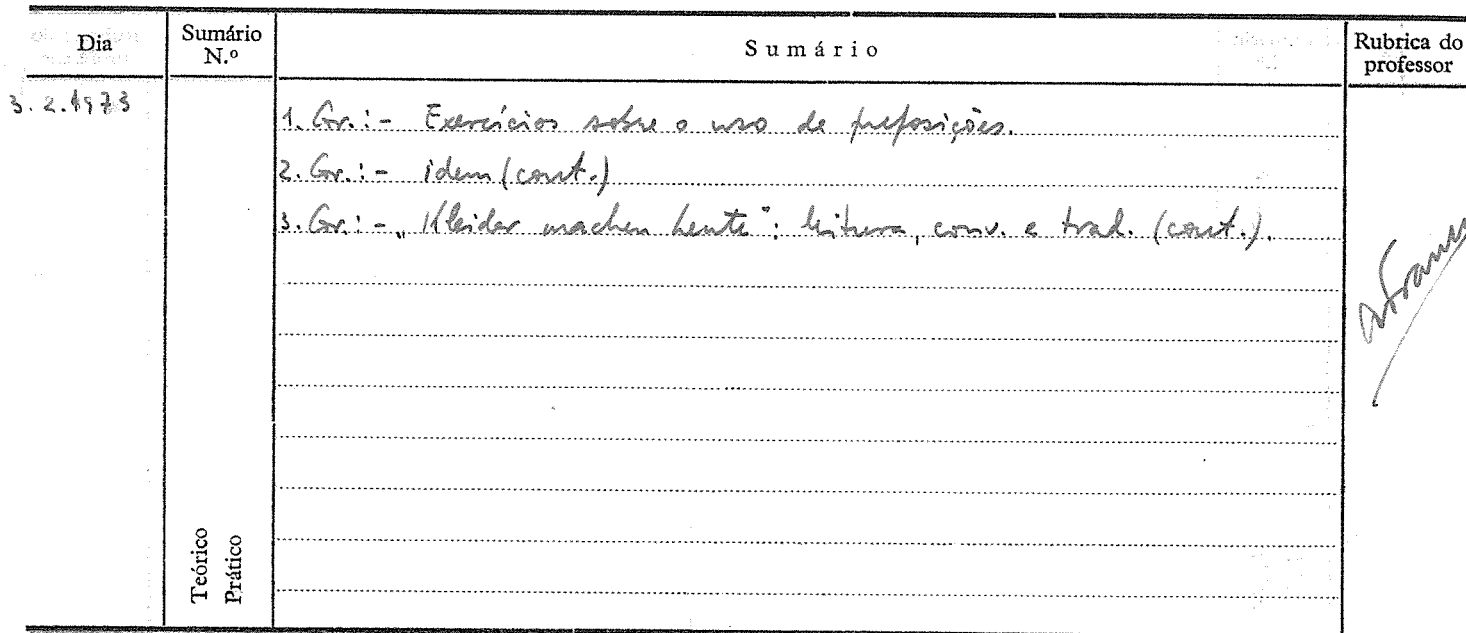 Dia
Sumário N.º
Sumário
Rubrica do professor
3.2.1973
1. Gr.:- Exercícios sobre o uso de preposições.
2. Gr.:- idem (cont.)
3. Gr.:- „Kleider machen Leute": leitura, conv. e trad. (cont.).
Teórico
Prático